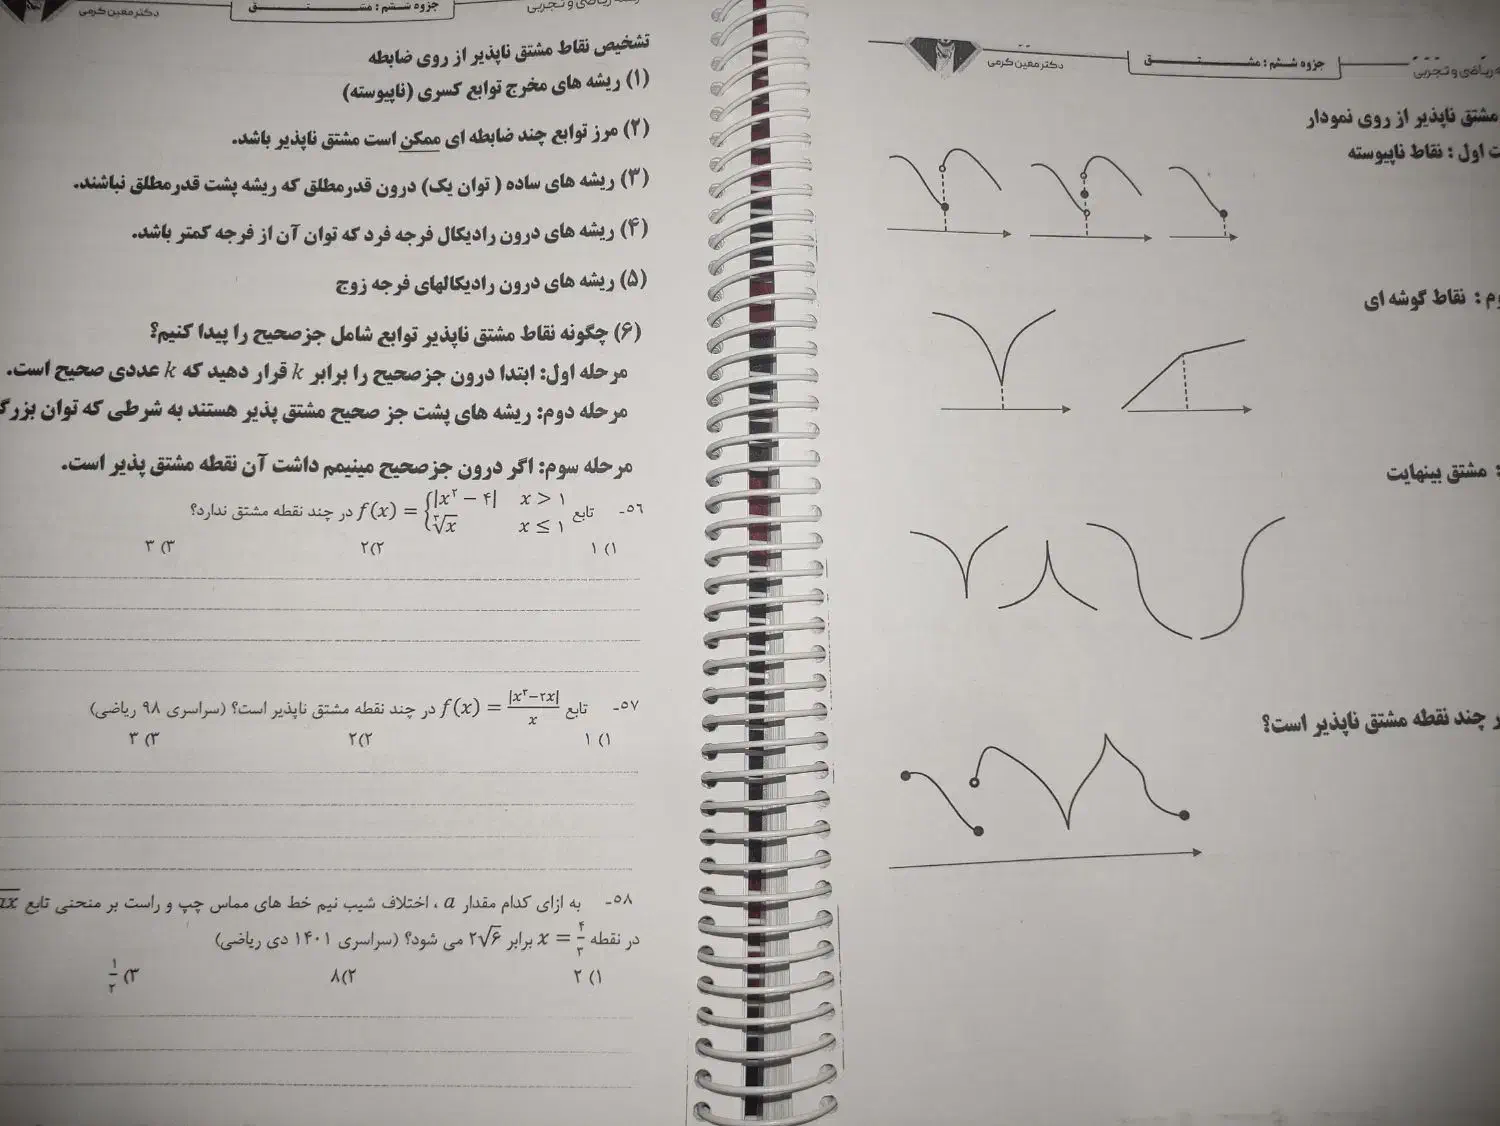 جزوه ششم : مشتـــــق
دکتر معین کرمی
تشخیص نقاط مشتق ناپذیر از روی ضابطه
(۱) ریشه های مخرج توابع کسری (ناپیوسته)
(۲) مرز توابع چند ضابطه ای ممکن است مشتق ناپذیر باشد.
(۳) ریشه های ساده ( توان یک) درون قدرمطلق که ریشه پشت قدرمطلق نباشند.
(۴) ریشه های درون رادیکال فرجه فرد که توان آن از فرجه کمتر باشد.
(۵) ریشه های درون رادیکالهای فرجه زوج
(۶) چگونه نقاط مشتق ناپذیر توابع شامل جزصحیح را پیدا کنیم؟
مرحله اول: ابتدا درون جزصحیح را برابر k قرار دهید که k عددی صحیح است.
مرحله دوم: ریشه های پشت جز صحیح مشتق پذیر هستند به شرطی که توان
مرحله سوم: اگر درون جزصحیح مینیمم داشت آن نقطه مشتق پذیر است.
۵۶- تابع f(x) = {|x^۲ − ۴| x > ۱ ; ∛x x ≤ ۱ در چند نقطه مشتق ندارد؟
۱) ۱ ۲) ۲ ۳) ۳
۵۷- تابع f(x) = |x^۳−۲x|/x در چند نقطه مشتق ناپذیر است؟ (سراسری ۹۸ ریاضی)
۱) ۱ ۲) ۲ ۳) ۳
۵۸- به ازای کدام مقدار a ، اختلاف شیب نیم خط های مماس چپ و راست بر منحنی تابع
در نقطه x = ۴/۳ برابر ۲√۶ می شود؟ (سراسری ۱۴۰۱ دی ریاضی)
۱) ۲ ۲) ۸ ۳) ۱/۲
ریاضی و تجربی
جزوه ششم : مشتـــــق
دکتر معین کرمی
مشتق ناپذیر از روی نمودار
اول : نقاط ناپیوسته
: نقاط گوشه ای
: مشتق بینهایت
چند نقطه مشتق ناپذیر است؟